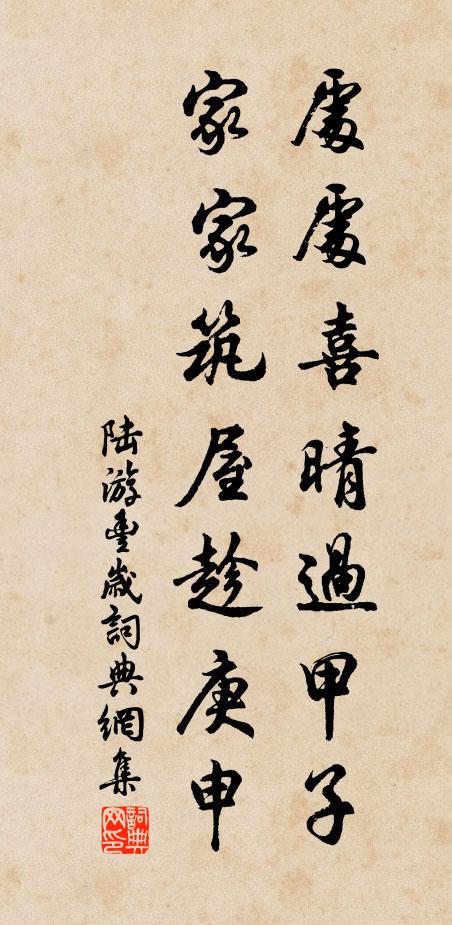 處處喜晴過甲子
家家筑屋趁庚申
陆游豊歲詞典網集
詞典網印